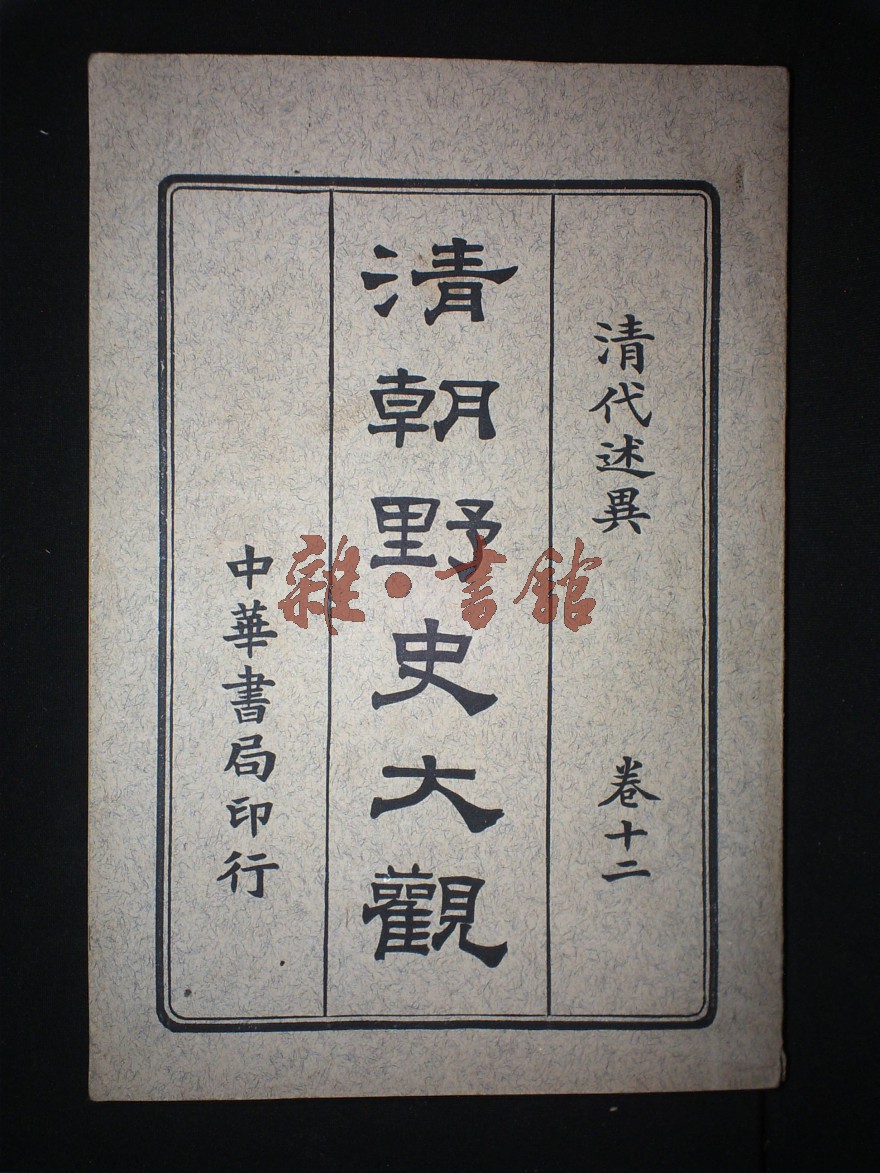 清代述異 卷十二
清朝野史大觀
中華書局印行
雜·書館